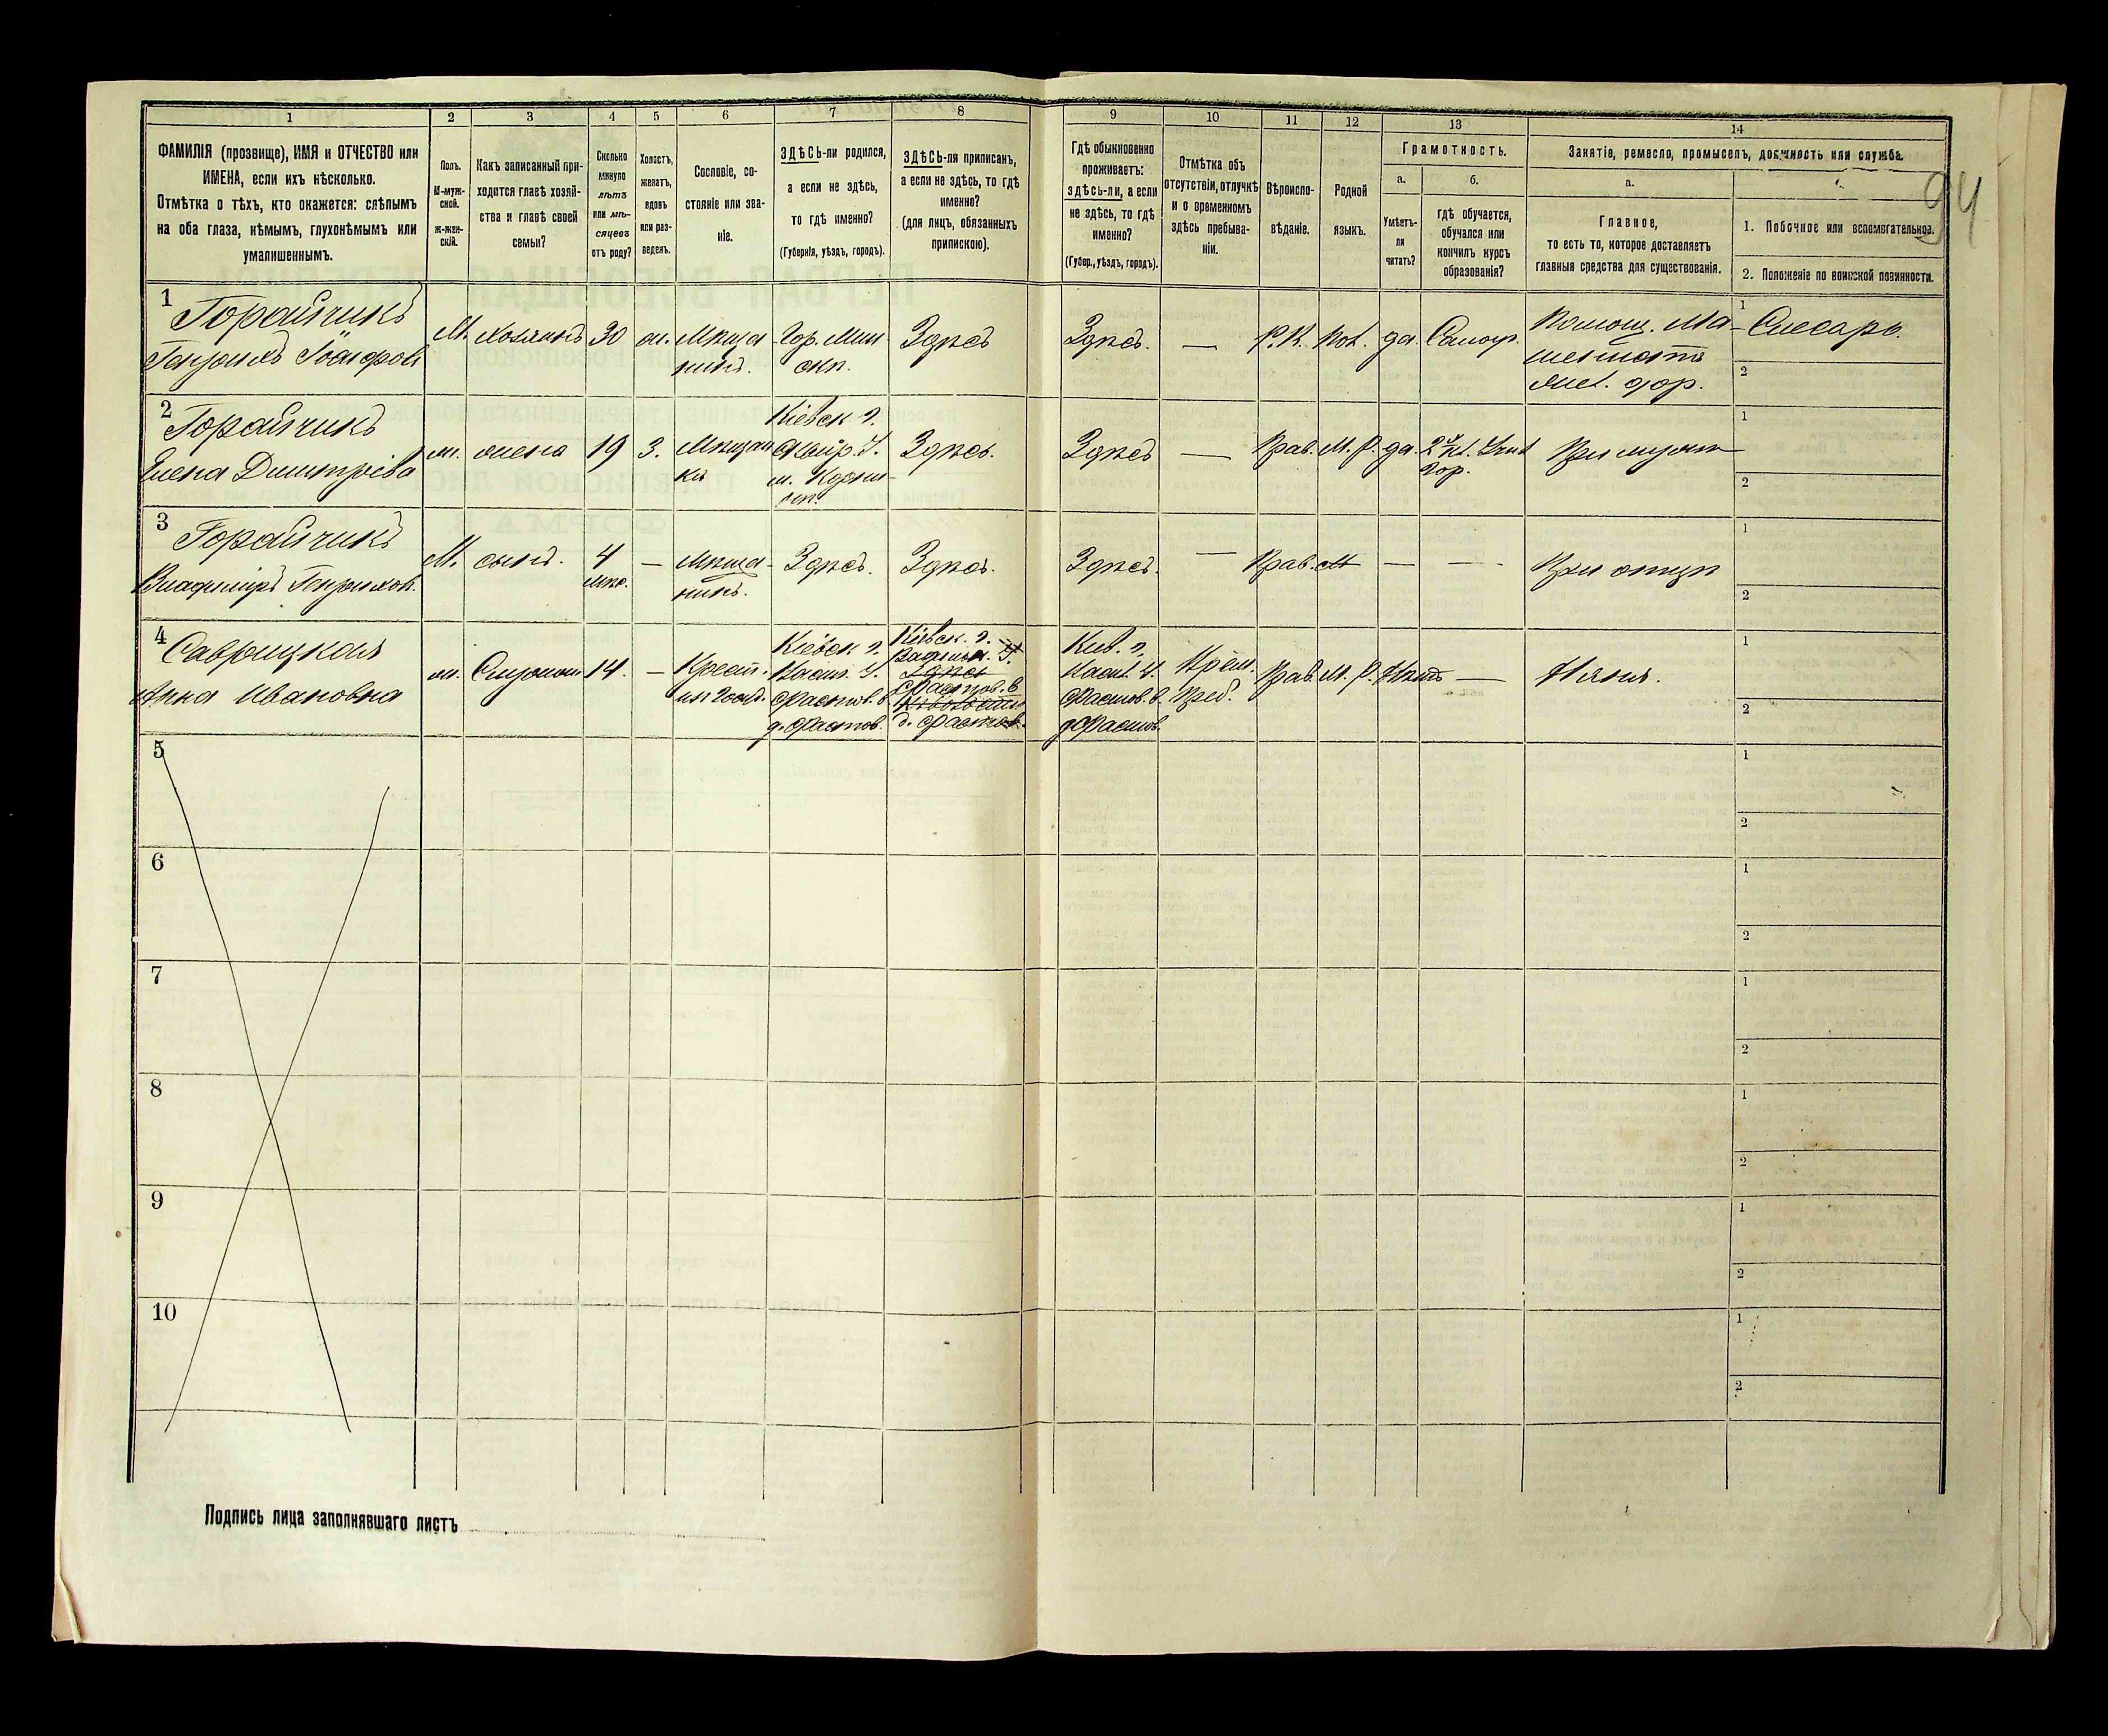 1 2 3 4 5 6 7 8 9 10 11 12 13 14
ФАМИЛІЯ (прозвище), ИМЯ и ОТЧЕСТВО или
ИМЕНА, если ихъ нѣсколько.
Отмѣтка о тѣхъ, кто окажется: слѣпымъ
на оба глаза, нѣмымъ, глухонѣмымъ или
умалишеннымъ.
Полъ.
М-муж-
ской.
Ж-жен-
скій.
Какъ записанный при-
ходится главѣ хозяй-
ства и главѣ своей
семьи?
Сколько
минуло
лѣтъ
или мѣ-
сяцевъ
отъ роду?
Холостъ,
женатъ,
вдовъ
или раз-
веденъ.
Сословіе, со-
стояніе или зва-
ніе.
ЗДѢСЬ-ли родился,
а если не здѣсь,
то гдѣ именно?
(Губернія, уѣздъ, городъ).
ЗДѢСЬ-ли приписанъ,
а если не здѣсь, то гдѣ
именно?
(для лицъ, обязанныхъ
припискою).
Гдѣ обыкновенно
проживаетъ:
здѣсь-ли, а если
не здѣсь, то гдѣ
именно?
(Губер., уѣздъ, городъ).
Отмѣтка объ
отсутствіи, отлучкѣ
и о временномъ
здѣсь пребыва-
ніи.
Вѣроиспо-
вѣданіе.
Родной
языкъ.
Грамотность.
а.
Умѣетъ-
ли
читать?
б.
гдѣ обучается,
обучался или
кончилъ курсъ
образованія?
Занятіе, ремесло, промыселъ, должность или служба.
а.
Главное,
то есть то, которое доставляетъ
главныя средства для существованія.
1. Побочное или вспомогательное.
2. Положеніе по воинской повинности.
94
1
Горайчикъ
М. Хозяинъ 30 ж. Мѣща-
нинъ.
Гор. Мин
скѣ.
Здѣсь
Здѣсь.
—
Р.К. Пол. да. Самоуч.
Помощ. Ма-
шиниста
жел. дор.
1 Слесарь.
2
2
Горайчикъ
Елена Дмитріева
ж. жена 19 З. Мѣщан
ка
Кіевск г.
Здѣсь.
Здѣсь
—
Прав. М. Р. да.
При мужѣ
1
2
3
Горайчикъ
Владиміръ Генрихов.
М. сынъ. 4
мѣс.
— Мѣща-
нинъ.
Здѣсь.
Здѣсь.
Здѣсь.
— Прав. — —
При отцѣ
1
2
4
Саврицкая
Анна Ивановна
ж. 14. — Крест.
Кіевск г.
Васил. У.
Фастов. в.
д. Фастов.
Кіевск. г.
Васильк. У.
Здѣсь
Фастов. в
д. Фастов.
Кив. г.
Васил. У.
Фастов. в.
д Фастов.
Врем.
Преб.
Прав. М. Р. Нѣтъ —
Няня.
1
2
5
1
2
6
1
2
7
1
2
8
1
2
9
1
2
10
1
2
Подпись лица заполнявшаго листъ